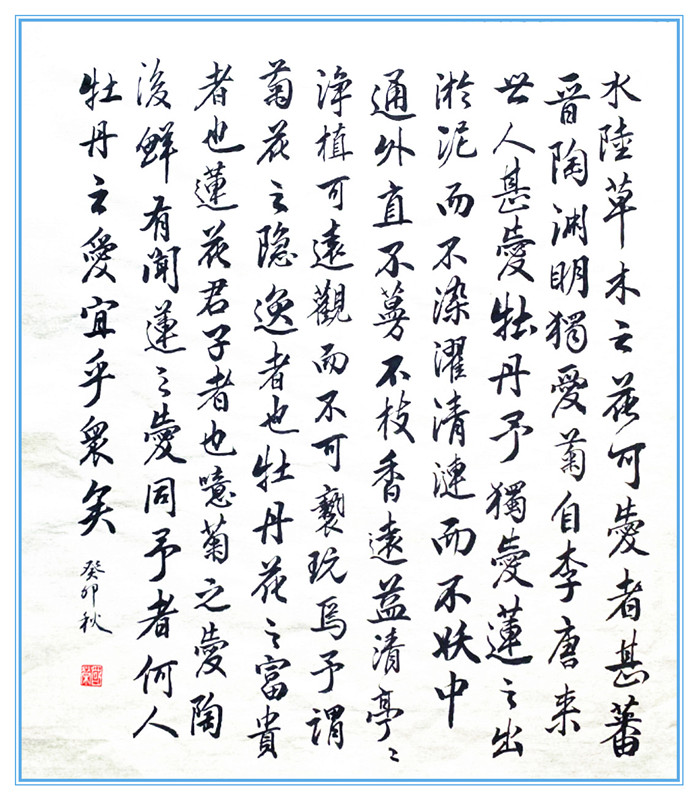 水陸草木之花可愛者甚蕃
晋陶渊明獨愛菊自李唐来
世人甚愛牡丹予獨愛蓮之出
淤泥而不染濯清漣而不妖中
通外直不蔓不枝香遠益清亭〻
淨植可遠觀而不可褻玩焉予謂
菊花之隐逸者也牡丹花之富貴
者也蓮花君子者也噫菊之愛陶
後鮮有聞蓮之愛同予者何人
牡丹之愛宜乎衆矣
癸卯秋